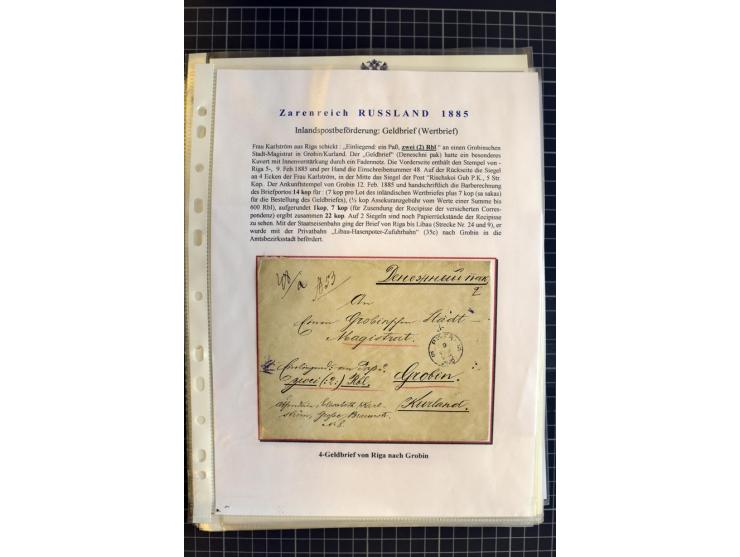 Zarenreich RUSSLAND 1885
Inlandspostbeförderung: Geldbrief (Wertbrief)
Frau Karlström aus Riga schickt : „Einliegend: ein Paß, zwei (2) Rbl." an einem Grobinschen
Stadt-Magistrat in Grobin/Kurland. Der „Geldbrief" (Deneschni pak) hatte ein besonderes
Kuvert mit Innenverstärkung durch ein Fadennetz. Die Vorderseite enthält den Stempel von -
Riga 5-, 9. Feb 1885 und per Hand die Einschreibenummer 48. Auf der Rückseite die Siegel
an 4 Ecken der Frau Karlström, in der Mitte das Siegel der Post "Rischskoi Gub P.K., 5 Str.
Kop. Der Ankunftstempel von Grobin 12. Feb. 1885 und handschriftlich die Barberechnung
des Briefportos:14 kop für : (7 kop pro Lot des inländischen Wertbriefes plus 7 kop (sa sakas)
für die Bestellung des Geldbriefes), (½ kop Assekuranzgebühr vom Werte einer Summe bis
600 Rbl), aufgerundet 1kop, 7 kop (für Zusendung der Recipisse der versicherten Correspon-
denz) ergibt zusammen 22 kop. Auf 2 Siegeln sind noch Papierrückstände der Recipisse
zu sehen. Mit der Staatseisenbahn ging der Brief von Riga bis Libau (Strecke Nr. 24 und 9), er
wurde mit der Privatbahn „Libau-Hasenpoter-Zufuhrbahn" (35c) nach Grobin in die
Amtsbezirksstadt befördert.
Денежный пак
An
Einen Grobinschen Stadt-
Magistrat.
Einliegend: ein Paß
zwei (2.) Rbl. Grobin.
Kurland.
4-Geldbrief von Riga nach Grobin